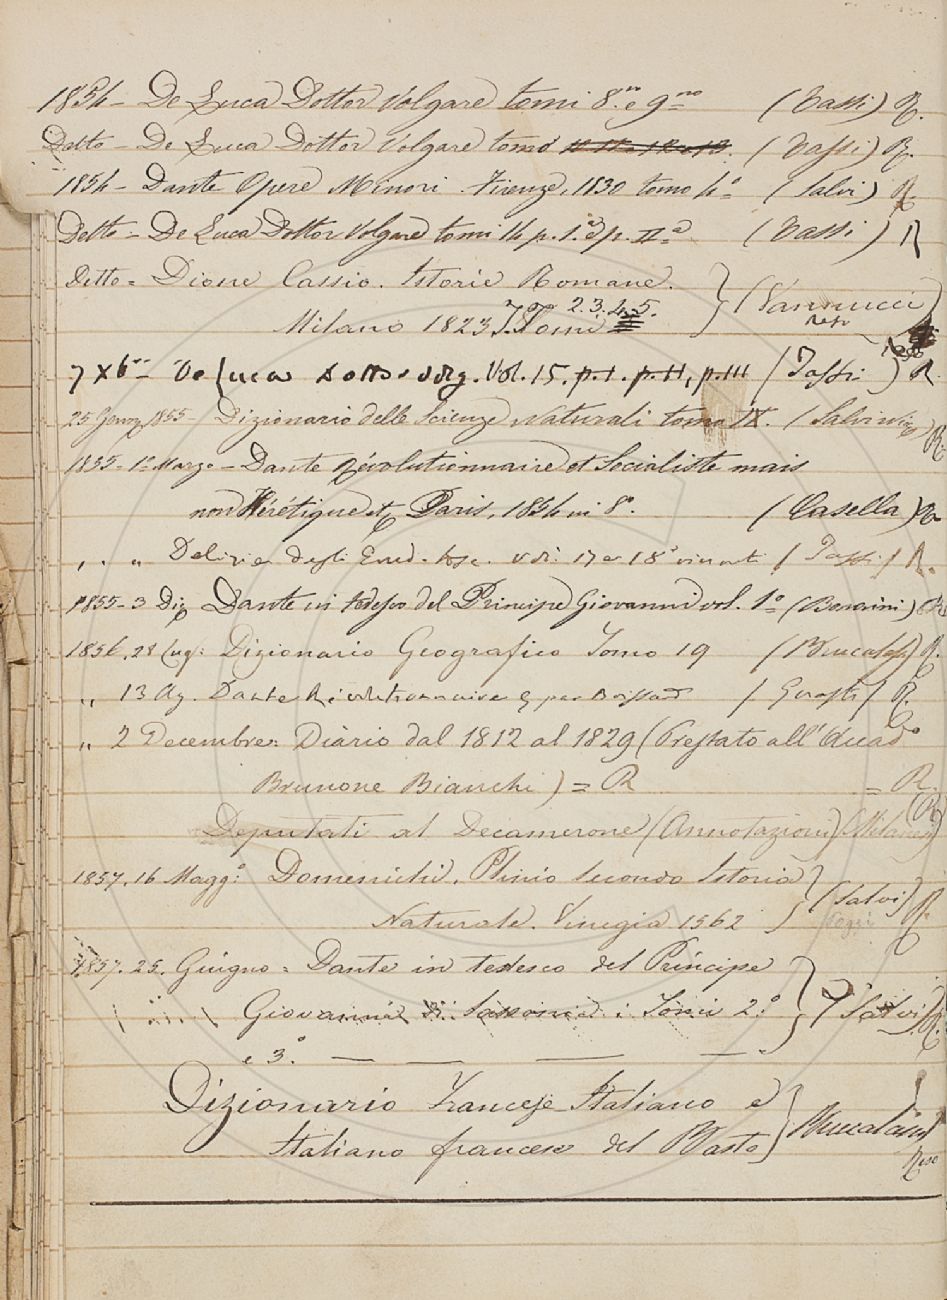 1854 - De Luca Dottor Volgare tomi 8.no e 9.no (Tassi) R.
Detto - De Luca Dottor Volgare tomo (Tassi) R.
1854 - Dante Opere Minori. Firenze, 1830 tomo 4.o (Salvi) R
Detto - De Luca Dottor Volgare tomi 14 p. 1.a e p. II.a (Tassi) R
Detto = Dione Cassio. Istorie Romane. (Vannucci
Milano 1823 T. Tomi 2. 3. 4. 5. reso
7 Xbre De Luca Dottor volg. Vol. 15. p. I. p. II, p. III (Tassi) R.
25 Genn. 1855 - Dizionario delle Scienze Naturali tomo IX. (Salvi R.
1855 - 1.o Marzo - Dante Révolutionnaire et Socialiste mais
non Hérétique et Paris, 1854 in 8.o (Casella) R
" " " Delizie degli Erud. tosc. vol. 17 e 18 (Tassi) R.
1855 - 3 Dante in tedesco del Principe Giovanni vol. 1.o (Bonaini)
1856. 28 Lug: Dizionario Geografico Tomo 19 R.
" 13 Ag. Dante Révolutionnaire per Boissard (Guasti) R.
" 2 Decembre: Diario dal 1812 al 1829 (Prestato all'
Brunone Bianchi) = R = R.
Deputati al Decamerone (Annotazioni) (Milanesi) (R)
1857. 16 Magg: Domenichi. Plinio Secondo Istoria (Salvi) R.
Naturale. Venegia 1562
1857. 25. Giugno = Dante in tedesco del Principe
Giovanni di Sassonia: Tomi 2.o (Salvi) R.
e 3.o
Dizionario Francese Italiano e
Italiano francese del Basto
Reso